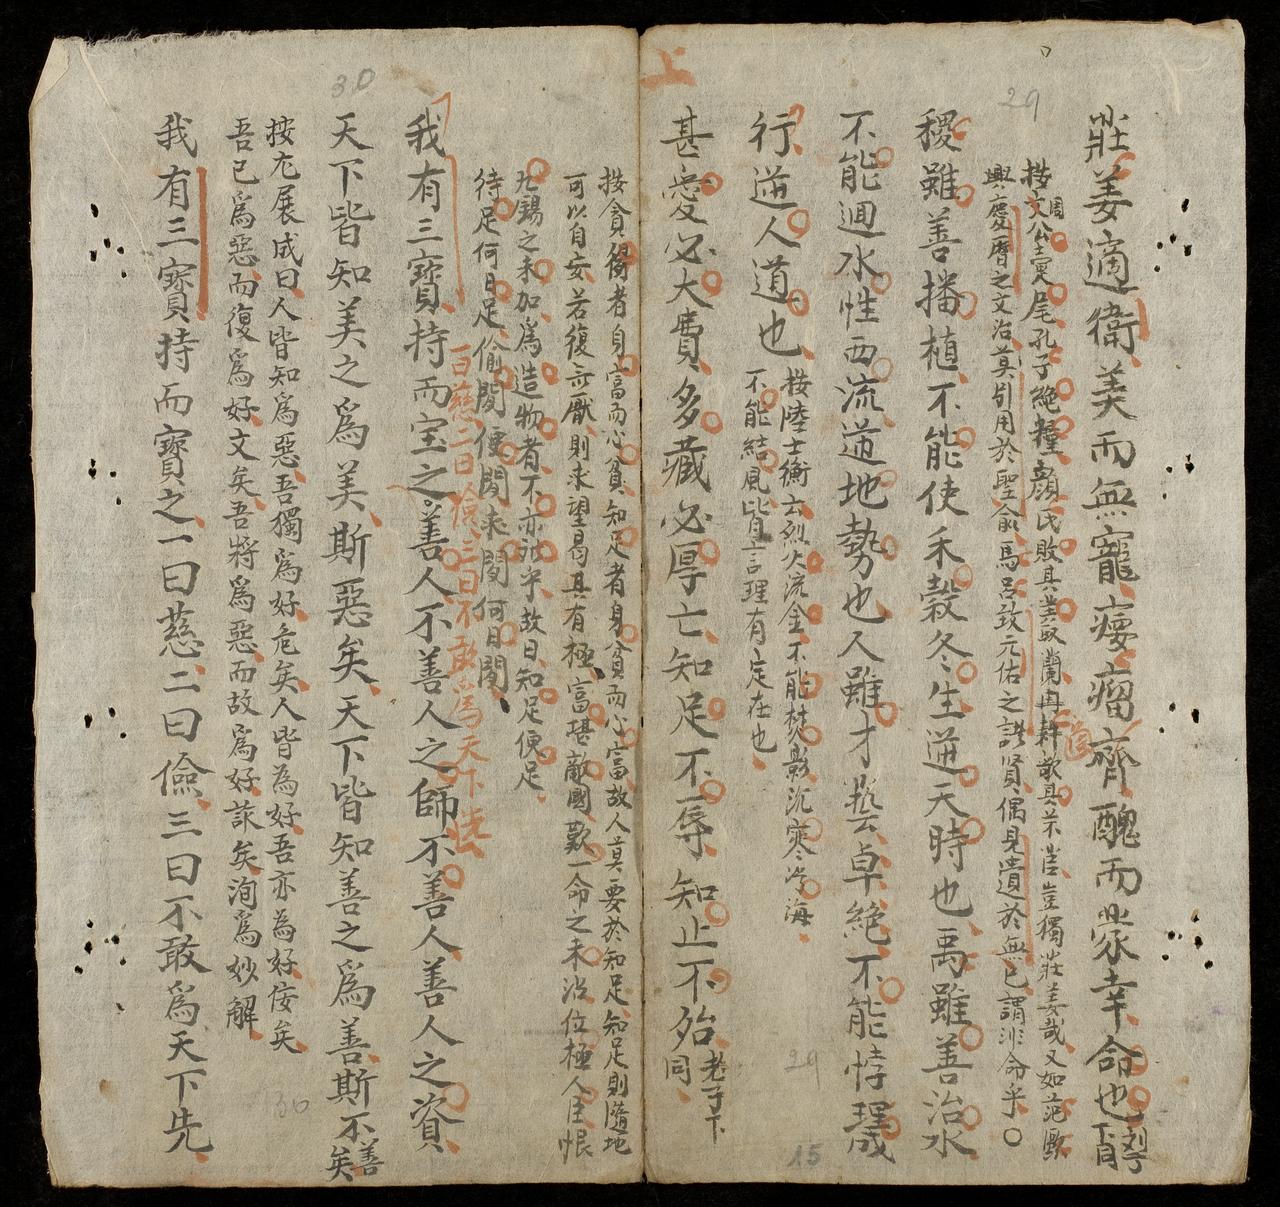 莊姜適衛美而無寵瘻瘤齊醜而蒙幸命也
按周文公疐尾孔子絕糧顏氏敗其叢蘭冉耕歌其芣苢豈獨莊姜哉又如范歐
興慶曆之文治莫引用於聖俞馬呂致元佑之諸賢偶見遺於無已謂非命乎○
稷雖善播植不能使禾穀冬生逆天時也禹雖善治水
不能迴水性西流逆地勢也人雖才藝卓絕不能悖理或
行逆人道也
按陸士衡云烈火流金不能焚影沉寒凝海
不能結風皆言理有定在也
上
甚愛必大費多藏必厚亡知足不辱知止不殆
老子下
同
按貪得者身富而心貧知足者身貧而心富故人莫要於知足知足則隨地
可以自安若復無厭則求望曷其有極富堪敵國歎一命之未沾位極人臣恨
九錫之未加為造物者不亦勞乎故曰知足便足
待足何日足偷閑便閑求閑何日閑
我有三寶持而宝之善人不善人之師不善人善人之資
一曰慈二曰儉三曰不敢為天下先
天下皆知美之為美斯惡矣天下皆知善之為善斯不善矣
按尤展成曰人皆知為惡吾獨為好危矣人皆為好吾亦為好佞矣
吾已為惡而復為好文矣吾將為惡而故為好詐矣洵為妙解
我有三寶持而寶之一曰慈二曰儉三曰不敢為天下先
29
30
29
15
30